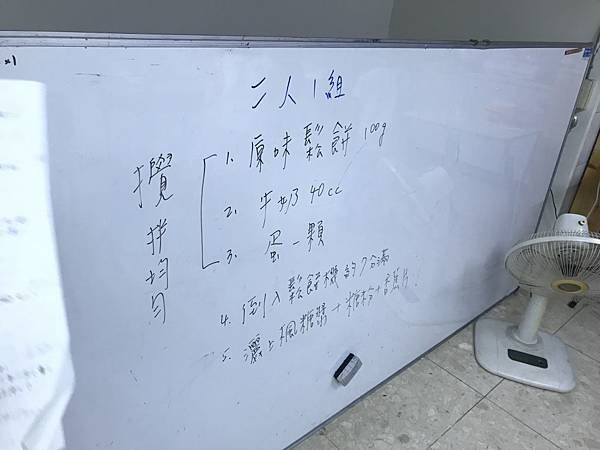 二人1組
攪拌均勻
1. 原味鬆餅 100g
2. 牛奶 40cc
3. 蛋一顆
4. 倒入鬆餅機約7分滿
5. 灑上楓糖漿+糖粉+香蕉片!